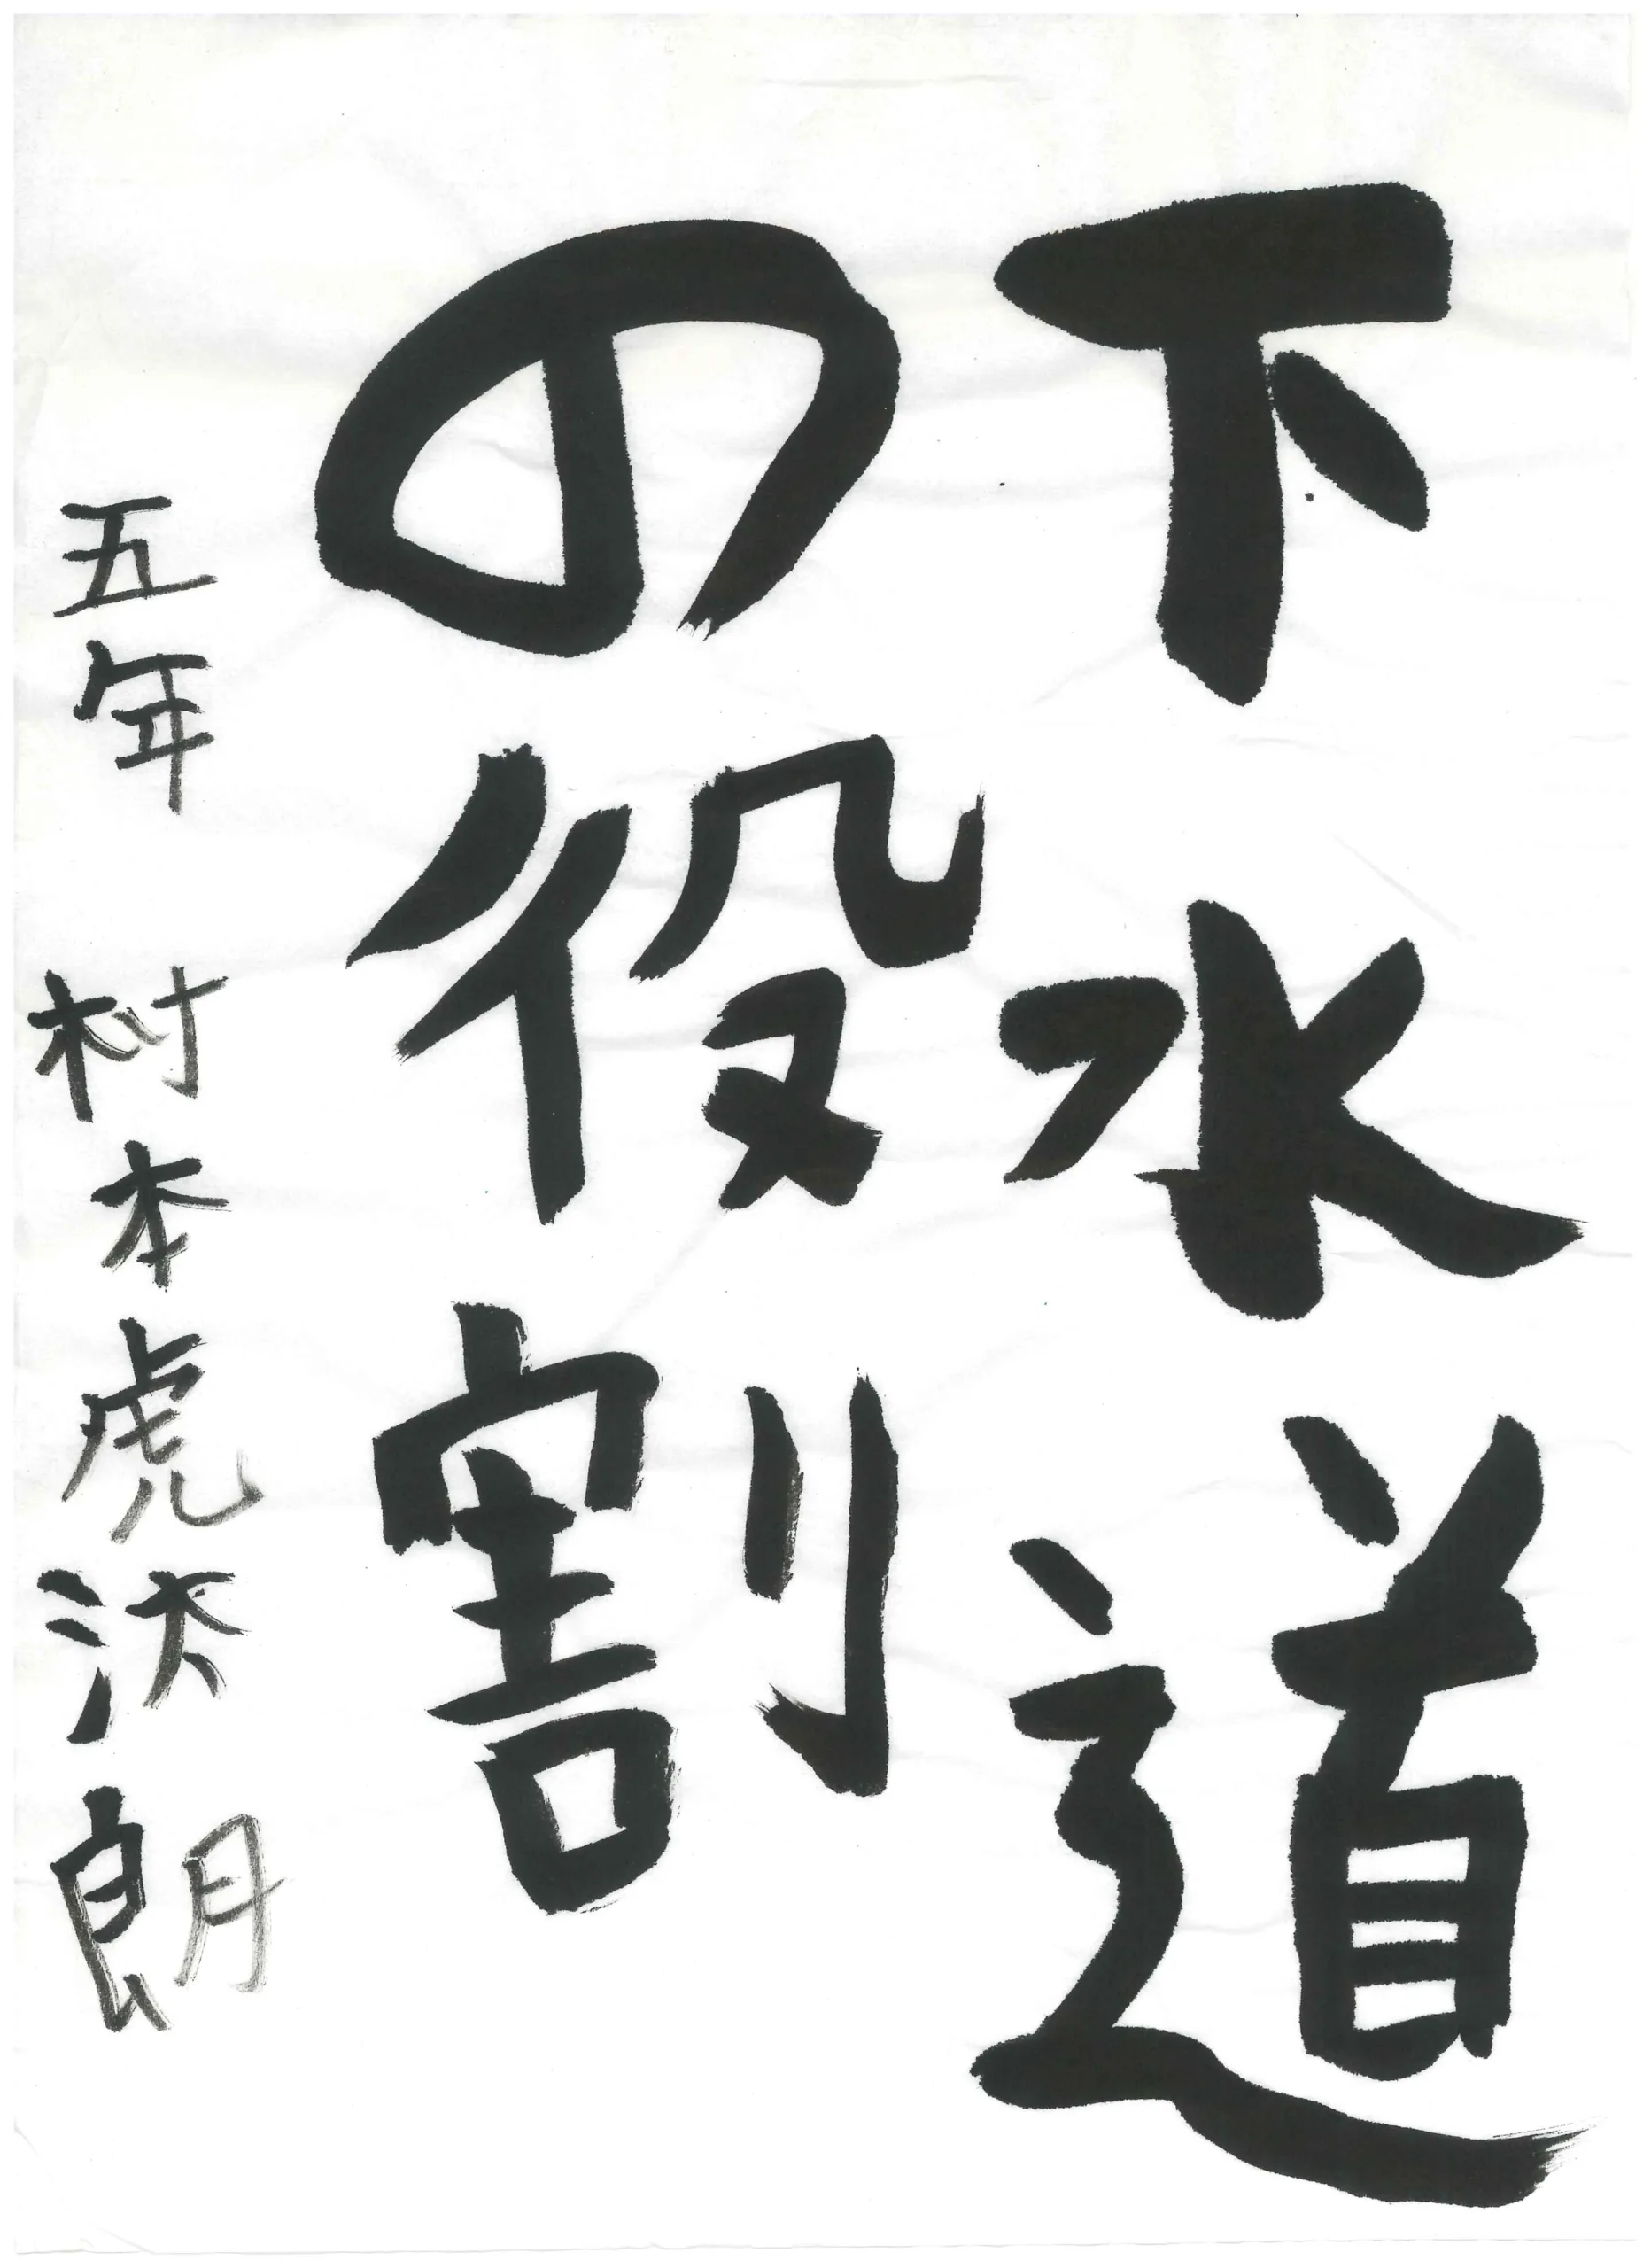 下水道
の役割
五年 村本虎汰朗